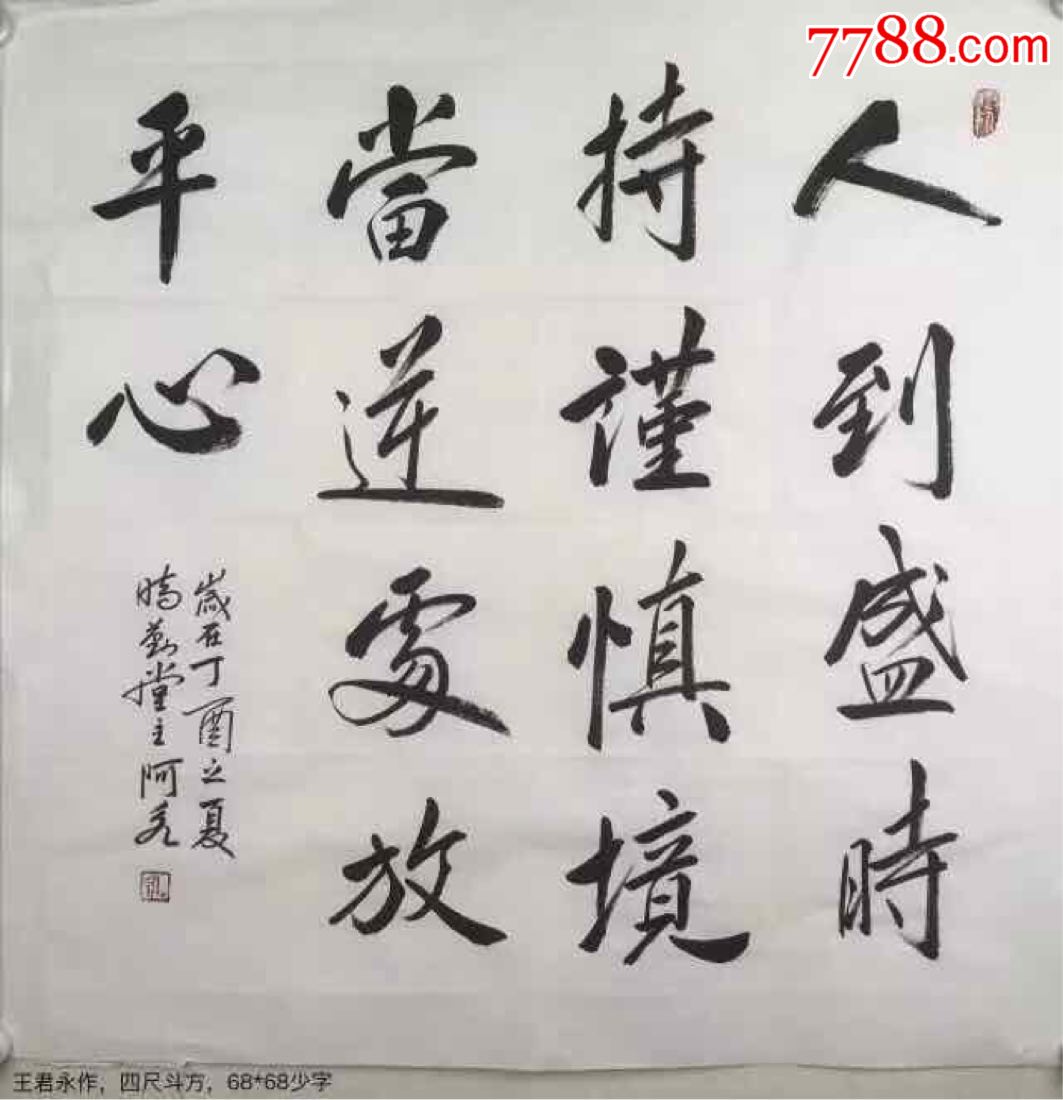 7788.com
人到盛時
持謹慎境
當逆處放
平心
歲在丁酉之夏
堂主阿
王君永作，四尺斗方，68*68少字